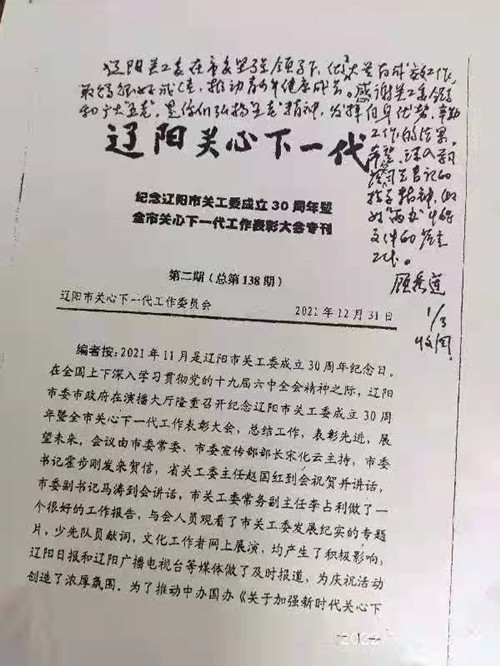 辽阳关工委在市委坚强领导下，做了大量有成效工作，
取得很好成绩，推动青少年健康成长。感谢关工委领导
和广大“五老”，是你们弘扬“五老”精神，发挥自身优势，辛勤
工作的结果。
希望深入学习
总书记的
指示精神，做
好“两办”
文件的落实
工作。
顾秀莲
1/3
收阅
辽阳关心下一代
纪念辽阳市关工委成立30周年暨
全市关心下一代工作表彰大会专刊
第二期（总第138期）
辽阳市关心下一代工作委员会 2021年12月31日
编者按：2021年11月是辽阳市关工委成立30周年纪念日。
在全国上下深入学习贯彻党的十九届六中全会精神之际，辽阳
市委市政府在演播大厅隆重召开纪念辽阳市关工委成立30周
年暨全市关心下一代工作表彰大会，总结工作，表彰先进，展
望未来。会议由市委常委、市委宣传部部长宋化云主持，市委
书记霍步刚发来贺信，省关工委主任赵国红到会祝贺并讲话，
市委副书记马涛到会讲话，市关工委常务副主任李占利做了一
个很好的工作报告，与会人员观看了市关工委发展纪实的专题
片，少先队员献词，文化工作者网上展演，均产生了积极影响，
辽阳日报和辽阳广播电视台等媒体做了及时报道，为庆祝活动
创造了浓厚氛围。为了推动中办国办《关于加强新时代关心下